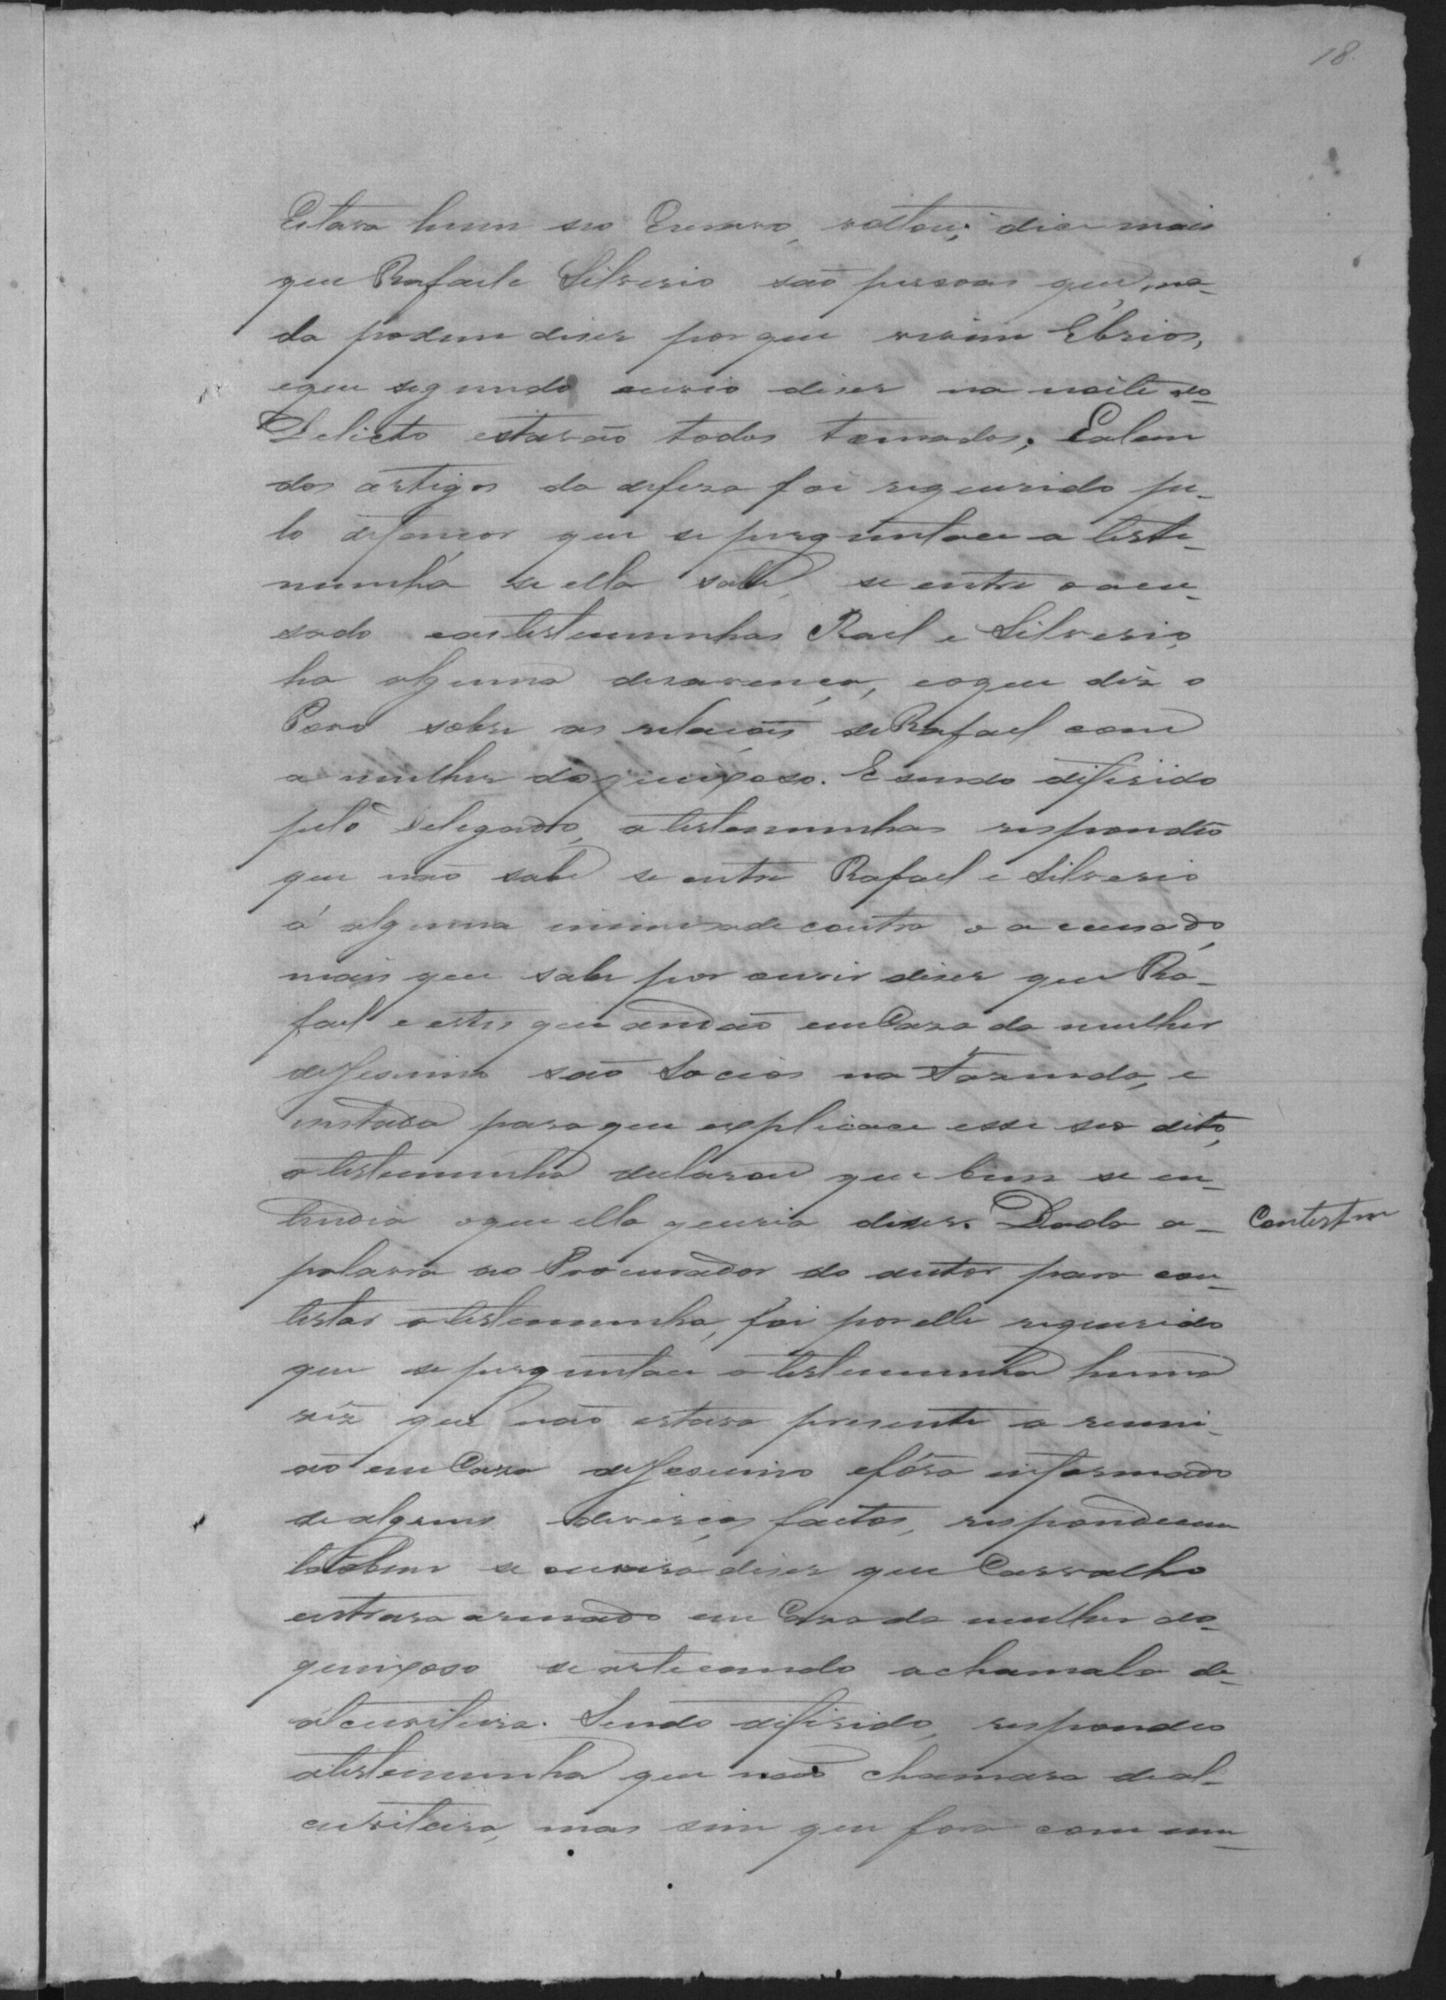 18
Estava hum seo Euzavo, voltou; dice mais
que Rafael e Silverio são pessoas que na-
da podem diser por que vivim Ebrios,
e que segundo ouvio diser na noite do
Delicto estavão todos tomados; E alem
dos artigos da defeza foi requerido pe-
lo defençor que se perguntace a teste-
munhá se ella sabe, se entre o acu-
sado e as testemunhas Rael e Silverio,
ha alguma desavença, e o que diz o
Povo sobre as relaçoes de Rafael com
a mulher do queixoso. E sendo diferido
pelo Delegado, a testemunhas respondeo
que não sabe se entre Rafael e Silverio
á alguma inimisade contra o acusado,
mais que sabe por ouvir diser que Ra-
fael e estes que andão em Caza da mulher
de Jesuino são Socios na Fazenda, e
instada para que explicace esse seo dito,
a testemunha declarou que bem se en-
tendia o que ella queria diser. Dada a-
Contest
palavra ao Procurador do autor para con-
testar a testemunha, foi por elle requerido
que se perguntace a testemunha huma
vêz que não estava presente a reuni-
ão em Caza de Jesuino e fôra informado
de alguns diverços factos, respondecem
tãobem se ouvira diser que Carvalho
entrara armado em Caza da mulher do
queixoso se articando a chamala de
alcuviteira. Sendo diferido, respondeo
a testemunha que não chamara de al-
cuviteira, mas sim que fora com um